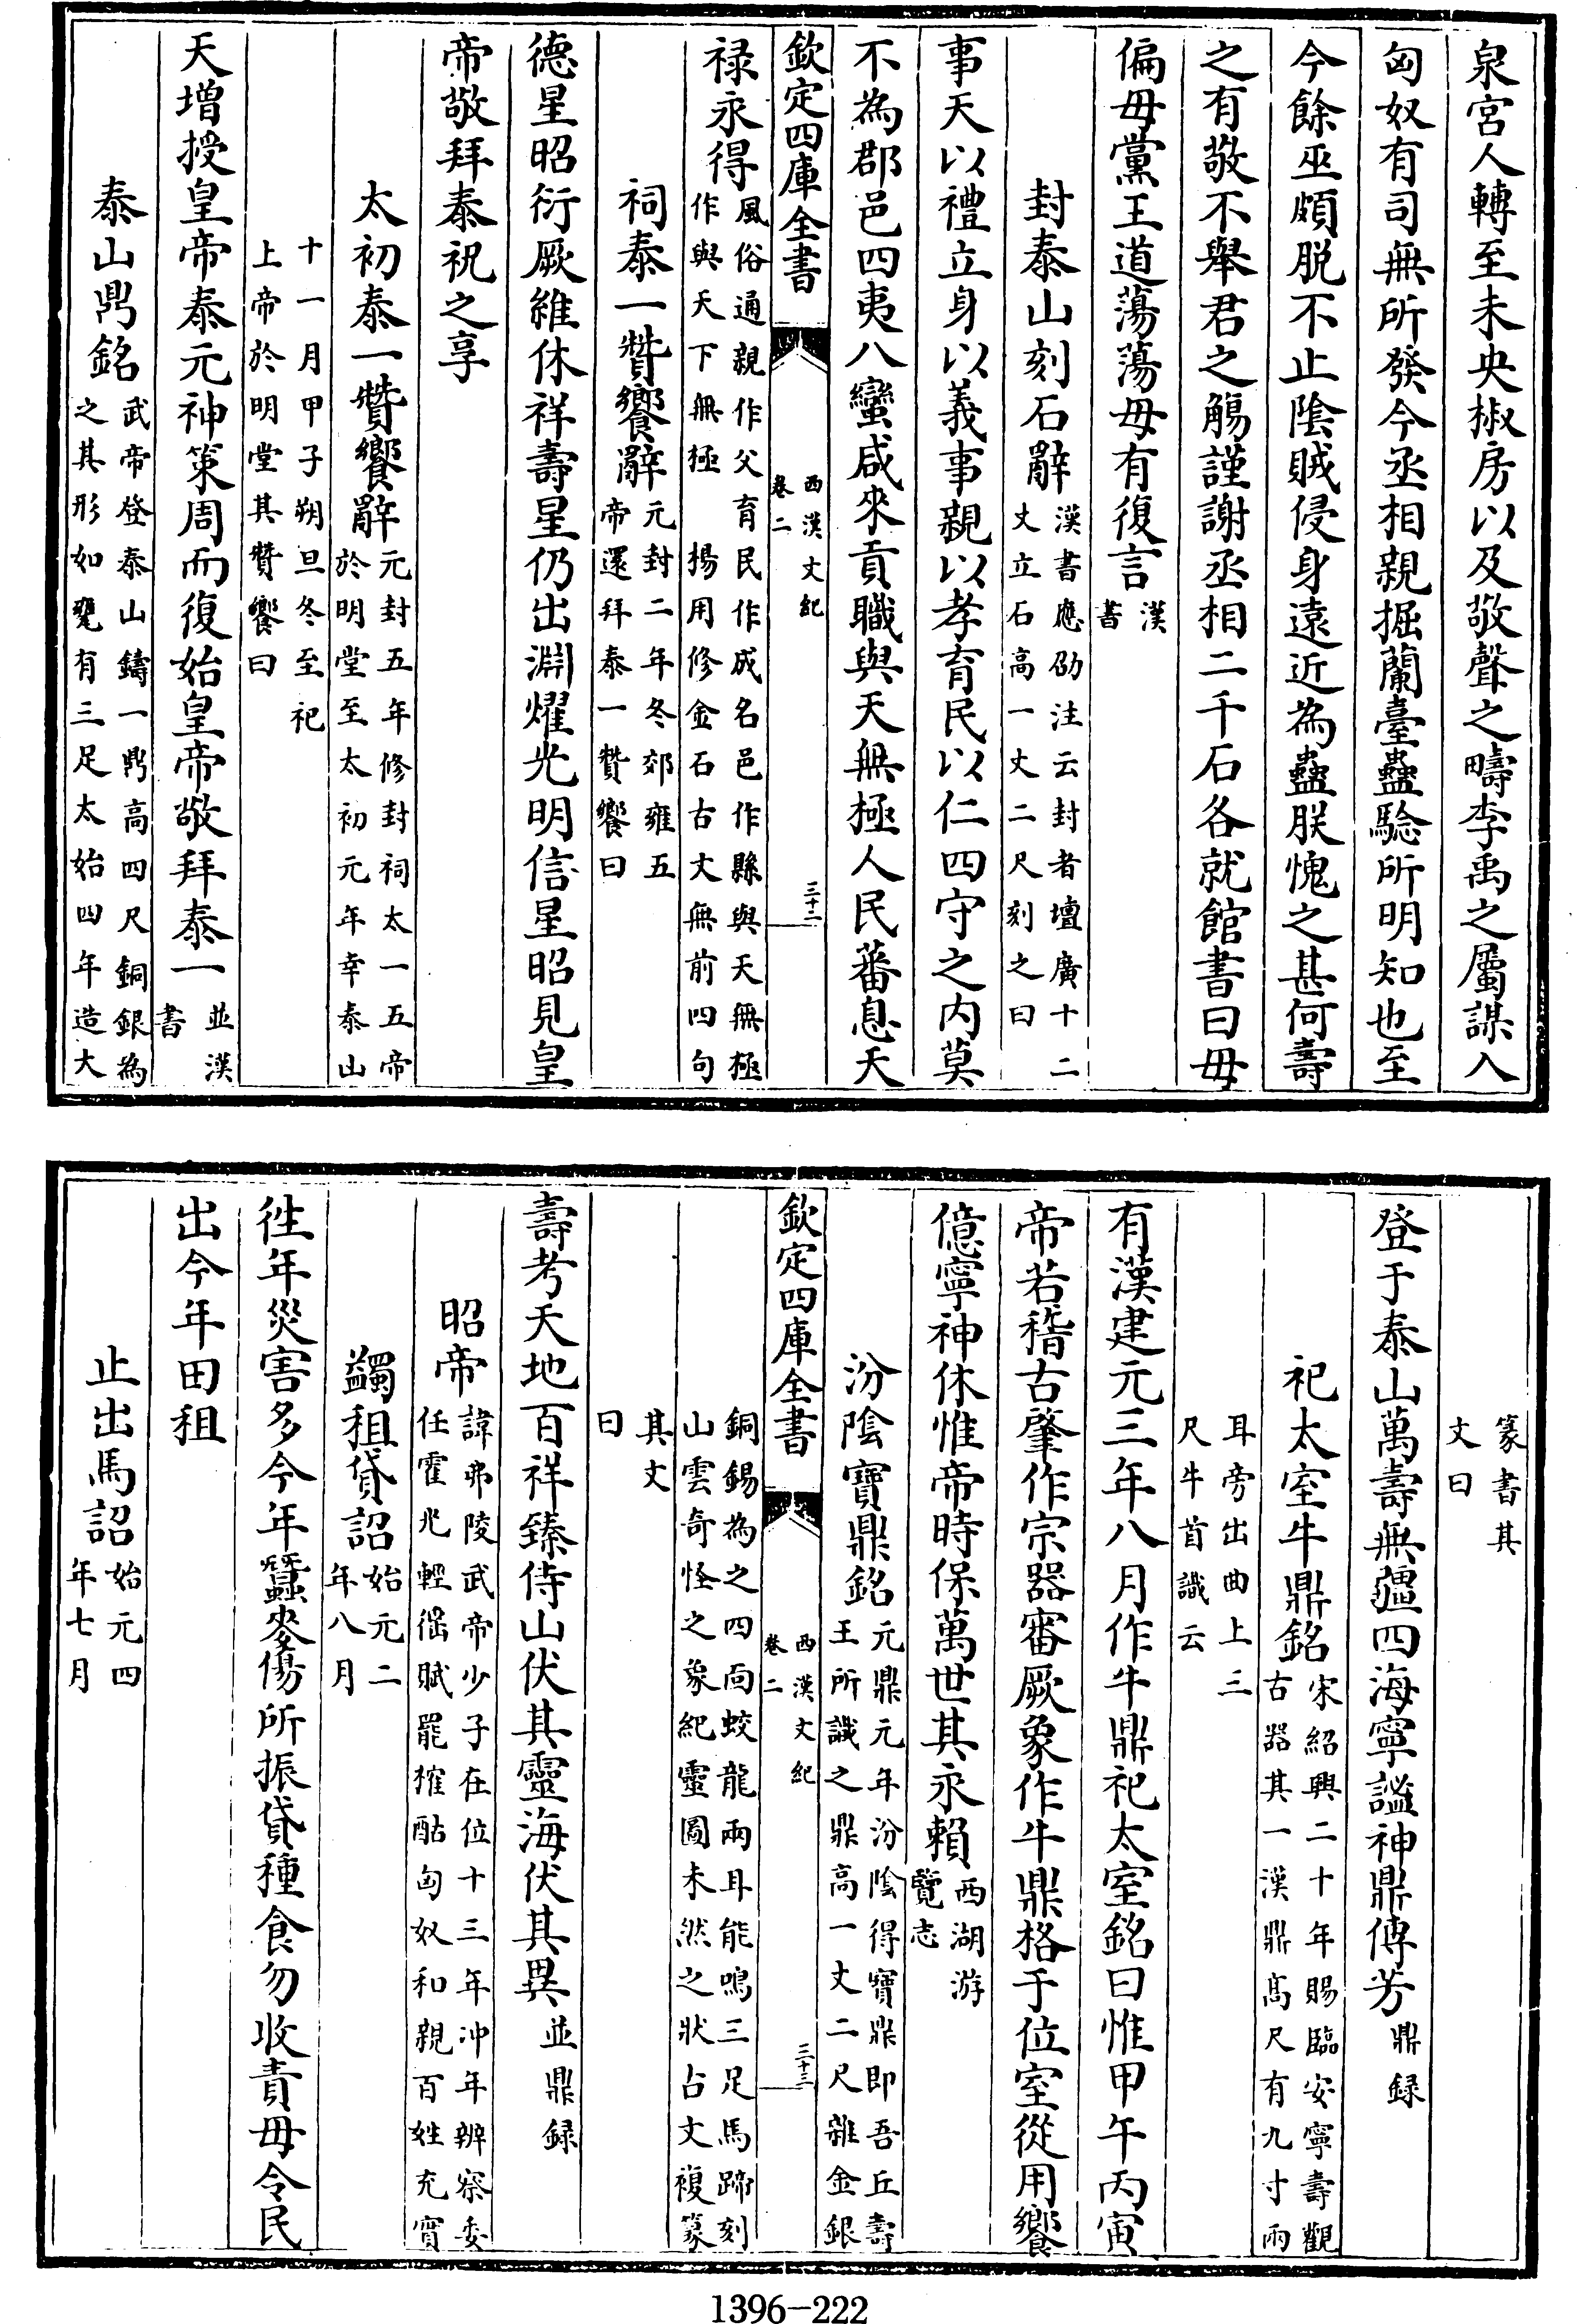 泉宮人轉至未央椒房以及敬聲之疇李禹之屬謀入
匈奴有司無所發今丞相親掘蘭臺蠱驗所明知也至
今餘巫頗脱不止陰賊侵身遠近為蠱朕愧之甚何壽
之有敬不舉君之觴謹謝丞相二千石各就館書曰毋
偏毋黨王道蕩蕩毋有復言漢書
封泰山刻石辭漢書應劭注云封者壇廣十二丈立石高一丈二尺刻之曰
事天以禮立身以義事親以孝育民以仁四守之内莫
不為郡邑四夷八蠻咸來貢職與天無極人民蕃息天
欽定四庫全書 西漢文紀 卷二 三十二
禄永得風俗通親作父育民作成名邑作縣與天無極作與天下無極 揚用修金石古文無前四句
祠泰一贊饗辭元封二年冬郊雍五帝還拜泰一贊饗曰
德星昭衍厥維休祥壽星仍出淵燿光明信星昭見皇
帝敬拜泰祝之享
太初泰一贊饗辭元封五年修封祠太一五帝於明堂至太初元年幸泰山
十一月甲子朔旦冬至祀上帝於明堂其贊饗曰
天增授皇帝泰元神策周而復始皇帝敬拜泰一並漢書
泰山鼎銘武帝登泰山鑄一鼎高四尺銅銀為之其形如甕有三足太始四年造大
篆書其文曰
登于泰山萬壽無疆四海寧謐神鼎傳芳鼎録
祀太室牛鼎銘宋紹興二十年賜臨安寧壽觀古器其一漢鼎髙尺有九寸兩
耳旁出曲上三尺牛首識云
有漢建元三年八月作牛鼎祀太室銘曰惟甲午丙寅
帝若稽古肇作宗器審厥象作牛鼎格于位室從用饗
億寧神休惟帝時保萬世其永賴西湖游覽志
汾陰寶鼎銘元鼎元年汾陰得寶鼎即吾丘壽王所識之鼎高一丈二尺雜金銀
欽定四庫全書 西漢文紀 卷二 三十三
銅錫為之四面蛟龍兩耳能鳴三足馬蹄刻山雲奇怪之象紀靈圖未然之狀占文複篆
其文曰
壽考天地百祥臻侍山伏其靈海伏其異並鼎録
昭帝諱弗陵武帝少子在位十三年冲年辨察委任霍光輕徭賦罷榷酤匈奴和親百姓充實
蠲租貸詔始元二年八月
徃年災害多今年蠶麥傷所振貸種食勿收責毋令民
出今年田租
止出馬詔始元四年七月
1396-222